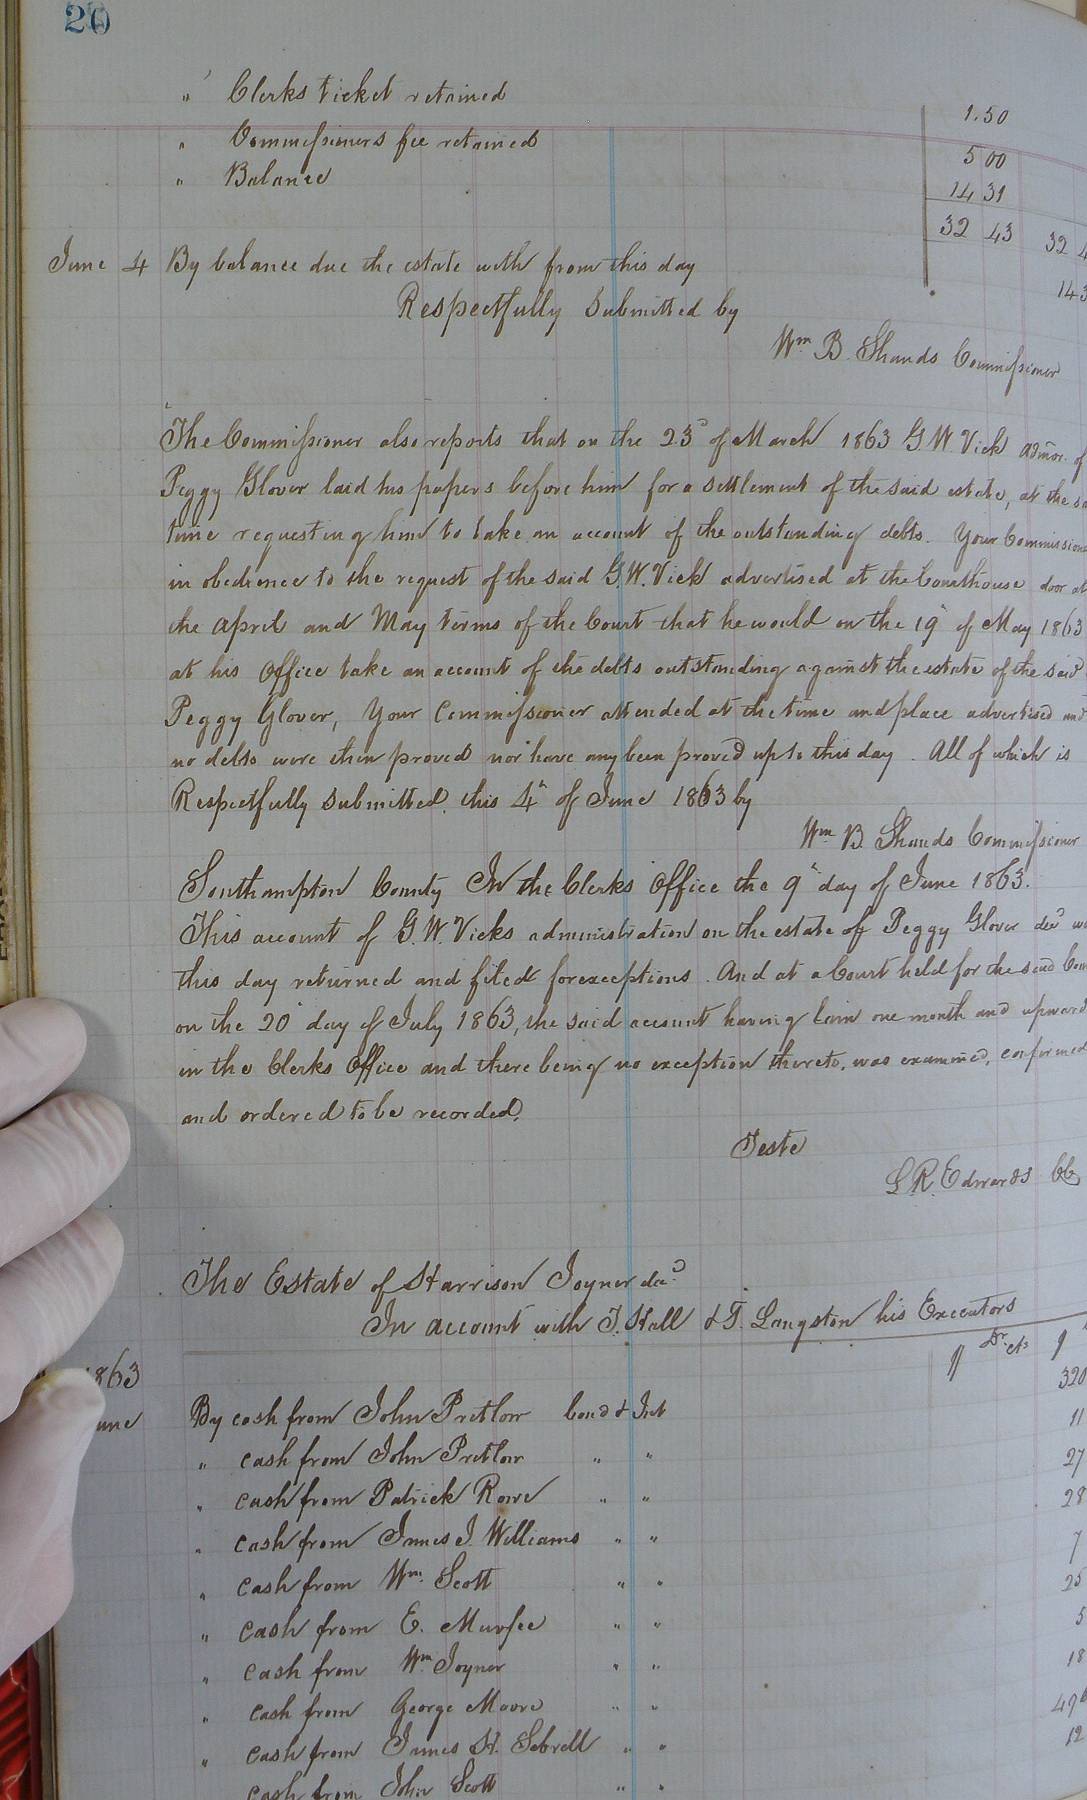 20
" Clerks ticket retained 1.50
" Commissioners fee retained 5 00
" Balance 14 31
32 43 32 4
June 4 By balance due the estate with from this day 143
Respectfully Submitted by
Wm B. Shands Commissioner
The Commissioner also reports that on the 23d of March 1863 G.W. Vick admor. of
Peggy Glover laid his papers before him for a settlement of the said estate, at the sa
time requesting him to take an account of the outstanding debts. Your Commissione
in obedience to the request of the said G.W. Vick advertised at the Courthouse door at
the April and May terms of the Court that he would on the 19" of May 1863
at his Office take an account of the debts outstanding against the estate of the said
Peggy Glover, Your Commissioner attended at the time and place advertised and
no debts were then proved nor have any been proved up to this day. All of which is
Respectfully submitted this 4" of June 1863 by
Wm B. Shands Commissioner
Southampton County In the Clerks Office the 9" day of June 1863.
This account of G.W. Vicks administration on the estate of Peggy Glover decd wa
this day returned and filed for exceptions. And at a Court held for the said Coun
on the 20" day of July 1863, the said account having lain one month and upward
in the Clerks Office and there being no exception thereto, was examined, confirmed
and ordered to be recorded.
Teste
L.R. Edwards CC
The Estate of Harrison Joyner decd
In account with J. Hall & T. Langston his Executors
Dr. cts
1863 320
une By cash from John Pretlow bond & Int 11
" cash from John Pretlow " " 27
" cash from Patrick Rowe " " 28
" cash from James J. Williams " " 7
" cash from Wm. Scott " " 25
" cash from E. Murfee " " 5
" cash from Wm. Joyner " " 18
" cash from George Moore " " 496
" cash from James H. Sebrell " " 12
cash from John Scott " "